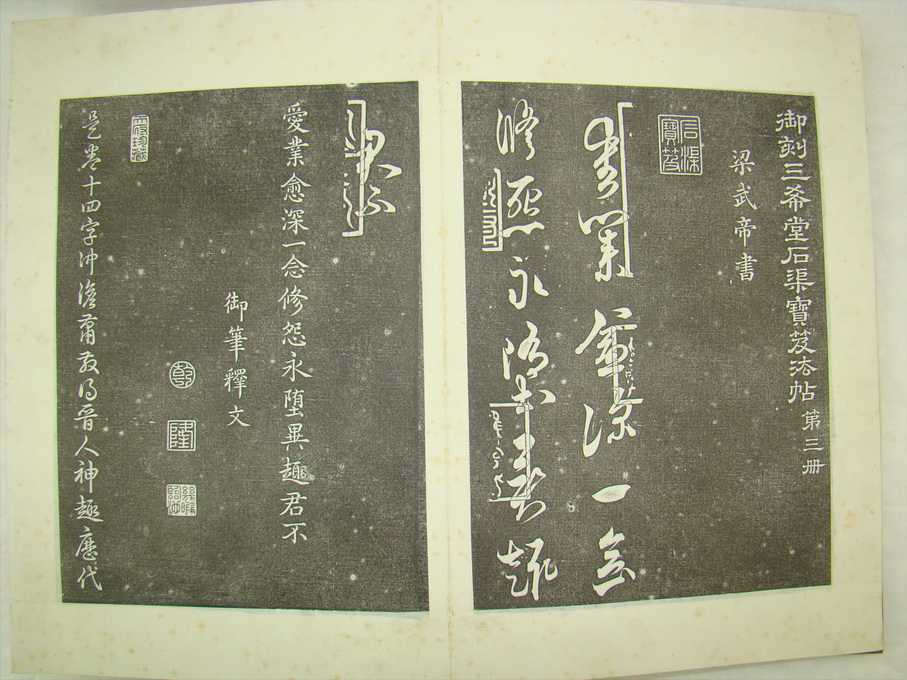 御刻三希堂石渠寶笈法帖 第三冊
梁武帝書
石渠寶笈
愛業愈深一念
修怨永墮異趣
君不
愛業愈深一念修怨永墮異趣君不
御筆釋文
乾
隆
是卷十四字沖澹蕭散得晉人神趣歷代